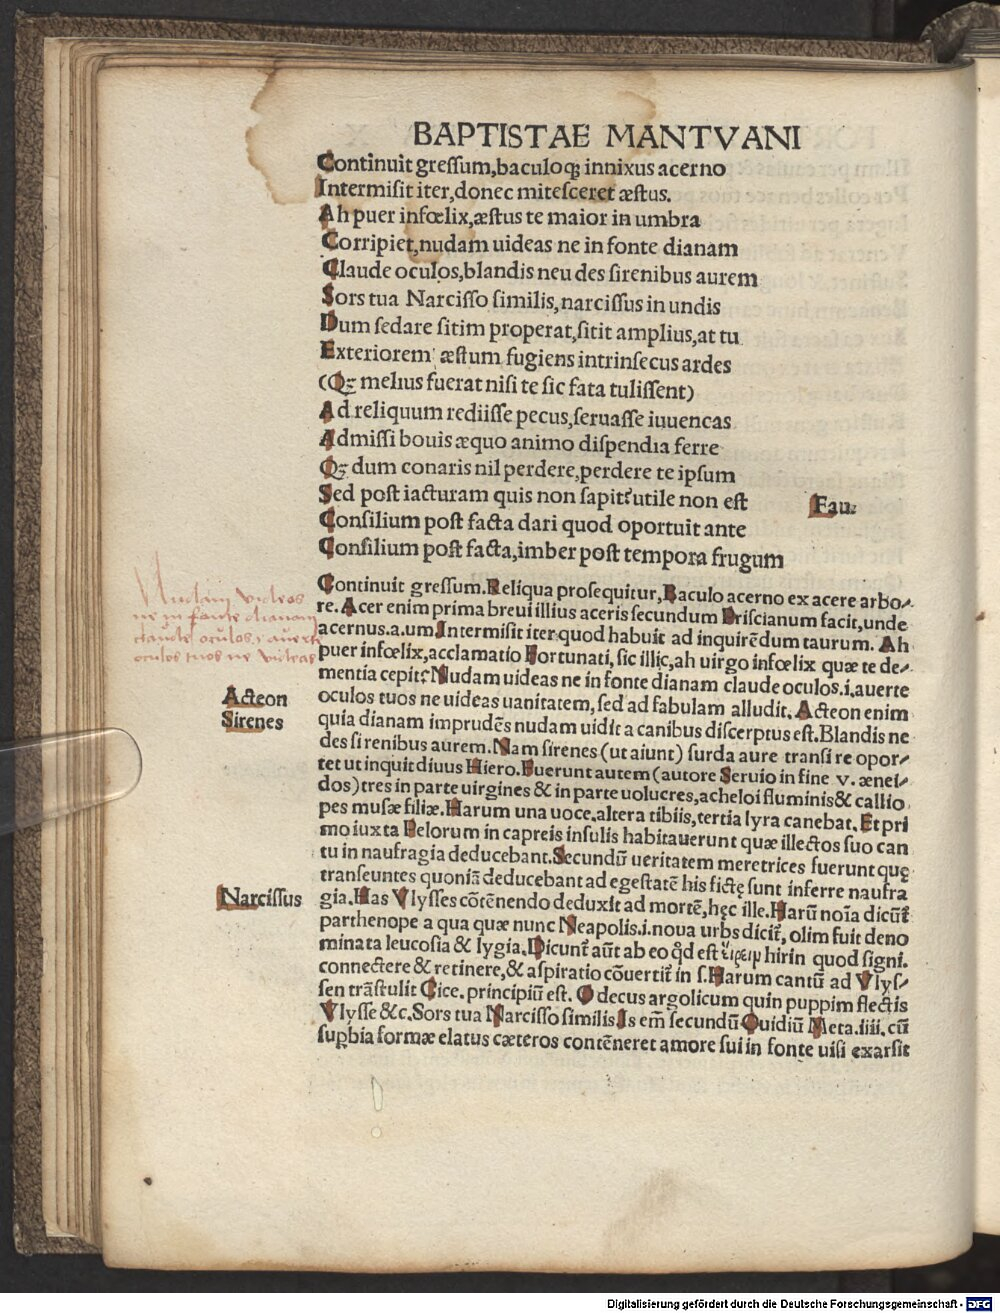 BAPTISTAE MANTVANI
Continuit gressum,baculoq; innixus acerno
Intermisit iter,donec mitesceret æstus.
Ah puer infœlix,æstus te maior in umbra
Corripiet,nudam uideas ne in fonte dianam
Claude oculos,blandis neu des sirenibus aurem
Sors tua Narcisso similis,narcissus in undis
Dum sedare sitim properat,sitit amplius,at tu
Exteriorem æstum fugiens intrinsecus ardes
(Qz melius fuerat nisi te sic fata tulissent)
Ad reliquum rediisse pecus,seruasse iuuencas
Admissi bouis æquo animo dispendia ferre
Qz dum conaris nil perdere,perdere te ipsum
Sed post iacturam quis non sapit?utile non est
Fau.
Consilium post facta dari quod oportuit ante
Consilium post facta,imber post tempora frugum
Continuit gressum.Reliqua prosequitur,Baculo acerno ex acere arbo-
re.Acer enim prima breui illius aceris secundum Priscianum facit,unde
acernus.a.um.Intermisit iter quod habuit ad inquirēdum taurum. Ah
puer infœlix,acclamatio Fortunati,sic illic,ah uirgo infœlix quæ te de-
mentia cepit?Nudam uideas ne in fonte dianam claude oculos.i.auerte
oculos tuos ne uideas uanitatem,sed ad fabulam alludit.Acteon enim
quia dianam imprudēs nudam uidit a canibus discerptus est.Blandis ne
des sirenibus aurem.Nam sirenes(ut aiunt)surda aure transire opor-
tet ut inquit diuus Hiero.Fuerunt autem(autore Seruio in fine v.ænei-
dos)tres in parte uirgines & in parte uolucres,acheloi fluminis& callio
pes musæ filiæ.Harum una uoce,altera tibiis,tertia lyra canebat.Et pri
mo iuxta Pelorum in capreis insulis habitauerunt quæ illectos suo can
tu in naufragia deducebant.Secundū ueritatem meretrices fuerunt quę
transeuntes quoniā deducebant ad egestatē his fictę sunt inferre naufra
gia.Has Vlysses cōtēnendo deduxit ad mortē,hęc ille.Harū noīa dicūt̄
parthenope a qua quæ nunc Neapolis.i.noua urbs dicit̄,olim fuit deno
minata leucosia & lygia.Dicunt̄ aūt ab eo qd̄ est hirin quod signi.
connectere & retinere,& aspiratio cōuertit̄ in s.Harum cantū ad Vlys-
sen trāstulit Cice.principiū est. O decus argolicum quin puppim flectis
Vlysse &c.Sors tua Narcisso similis.Is em̄ secundū Ouidiū Meta.iiii.cū
supbia formæ elatus cæteros contēneret amore sui in fonte uisi exarsit
Nudam videas
ne in fonte dianam
claude oculos, averte
oculos tuos ne videas
Acteon
Sirenes
Narcissus
Digitalisierung gefördert durch die Deutsche Forschungsgemeinschaft - DFG